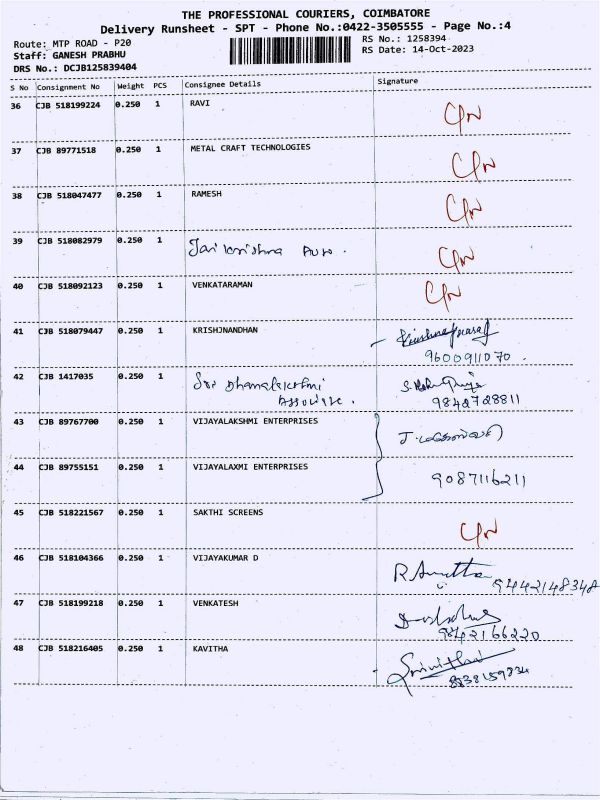 THE PROFESSIONAL COURIERS, COIMBATORE
Delivery Runsheet - SPT - Phone No.:0422-3505555 - Page No.:4
Route: MTP ROAD - P20
RS No.: 1258394
Staff: GANESH PRABHU
RS Date: 14-Oct-2023
DRS No.: DCJB125839404
S No Consignment No Weight PCS Consignee Details Signature
36 CJB 518199224 0.250 1 RAVI
37 CJB 89771518 0.250 1 METAL CRAFT TECHNOLOGIES
38 CJB 518047477 0.250 1 RAMESH
39 CJB 518082979 0.250 1 Jai krishna Auto.
40 CJB 518092123 0.250 1 VENKATARAMAN
41 CJB 518079447 0.250 1 KRISHJNANDHAN
9600911070.
42 CJB 1417035 0.250 1 Sri Dhanalakshmi
Associate. 9842728811
43 CJB 89767700 0.250 1 VIJAYALAKSHMI ENTERPRISES
44 CJB 89755151 0.250 1 VIJAYALAXMI ENTERPRISES 9087116211
45 CJB 518221567 0.250 1 SAKTHI SCREENS
46 CJB 518104366 0.250 1 VIJAYAKUMAR D
9442148348
47 CJB 518199218 0.250 1 VENKATESH
9842166220
48 CJB 518216405 0.250 1 KAVITHA